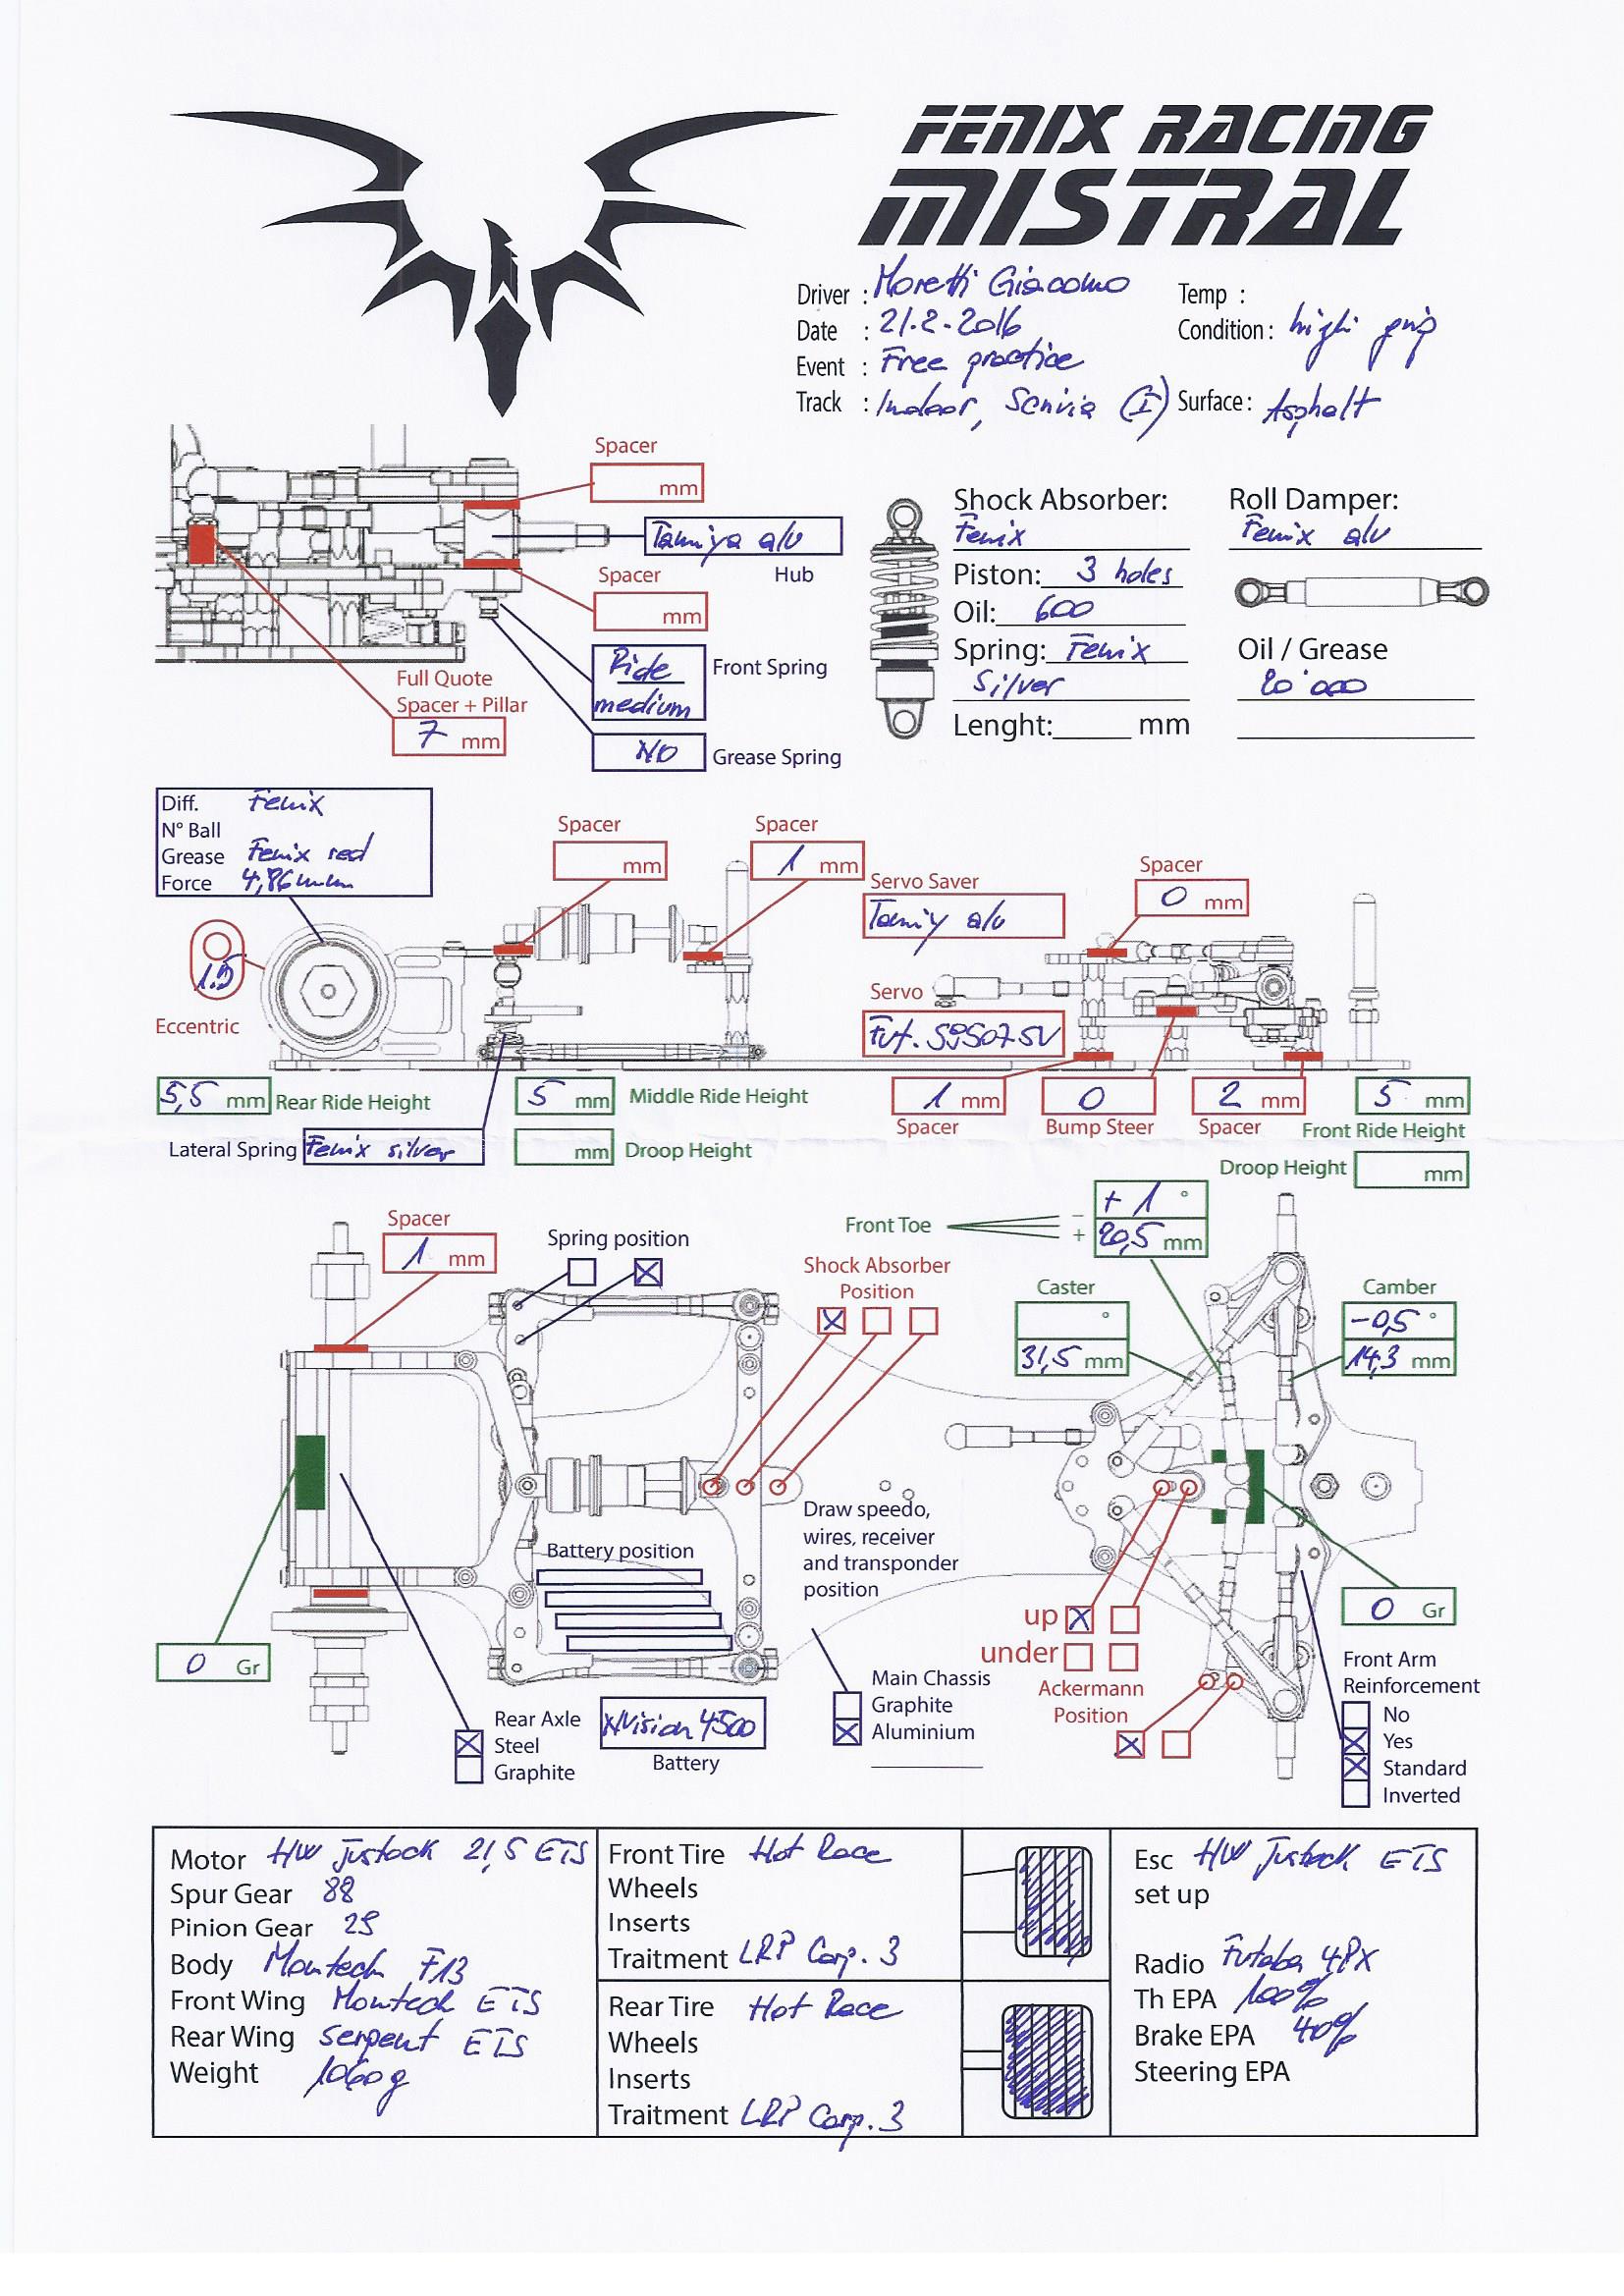 FENIX RACING
MISTRAL
Driver : Moretti Giacomo
Temp :
Date : 21.2.2016
Condition : high grip
Event : Free practice
Track : Indoor, Scrivia (I)
Surface : Asphalt
Spacer
mm
Tamiya alu
Hub
Spacer
mm
Ride medium
Front Spring
Full Quote
Spacer + Pillar
7 mm
NO
Grease Spring
Shock Absorber:
Fenix
Piston: 3 holes
Oil: 600
Spring: Fenix
Silver
Lenght: mm
Roll Damper:
Fenix alu
Oil / Grease
20'000
Diff. Fenix
N° Ball
Grease Fenix red
Force 4,86mm
Spacer
mm
Spacer
1 mm
Servo Saver
Tamiy alu
Spacer
0 mm
1.5
Eccentric
Servo
Fut. S9507SV
5,5 mm Rear Ride Height
5 mm Middle Ride Height
1 mm
Spacer
0
Bump Steer
2 mm
Spacer
5 mm
Front Ride Height
Lateral Spring Fenix silver
mm Droop Height
Droop Height mm
Spacer
1 mm
Spring position
Front Toe
- + 1 °
+ 20,5 mm
Shock Absorber
Position
Caster
°
31,5 mm
Camber
-0,5 °
14,3 mm
Battery position
Draw speedo,
wires, receiver
and transponder
position
0 Gr
0 Gr
up
under
Ackermann
Position
Rear Axle
Steel
Graphite
NVision 4500
Battery
Main Chassis
Graphite
Aluminium
Front Arm
Reinforcement
No
Yes
Standard
Inverted
Motor HW Justock 21,5 ETS
Spur Gear 88
Pinion Gear
Body Montech F13
Front Wing Montech ETS
Rear Wing Serpent ETS
Weight 1060g
Front Tire Hot Race
Wheels
Inserts
Traitment LRP Carp. 3
Rear Tire Hot Race
Wheels
Inserts
Traitment LRP Carp. 3
Esc HW Justock ETS
set up
Radio Futaba 4PX
Th EPA 100%
Brake EPA 40%
Steering EPA